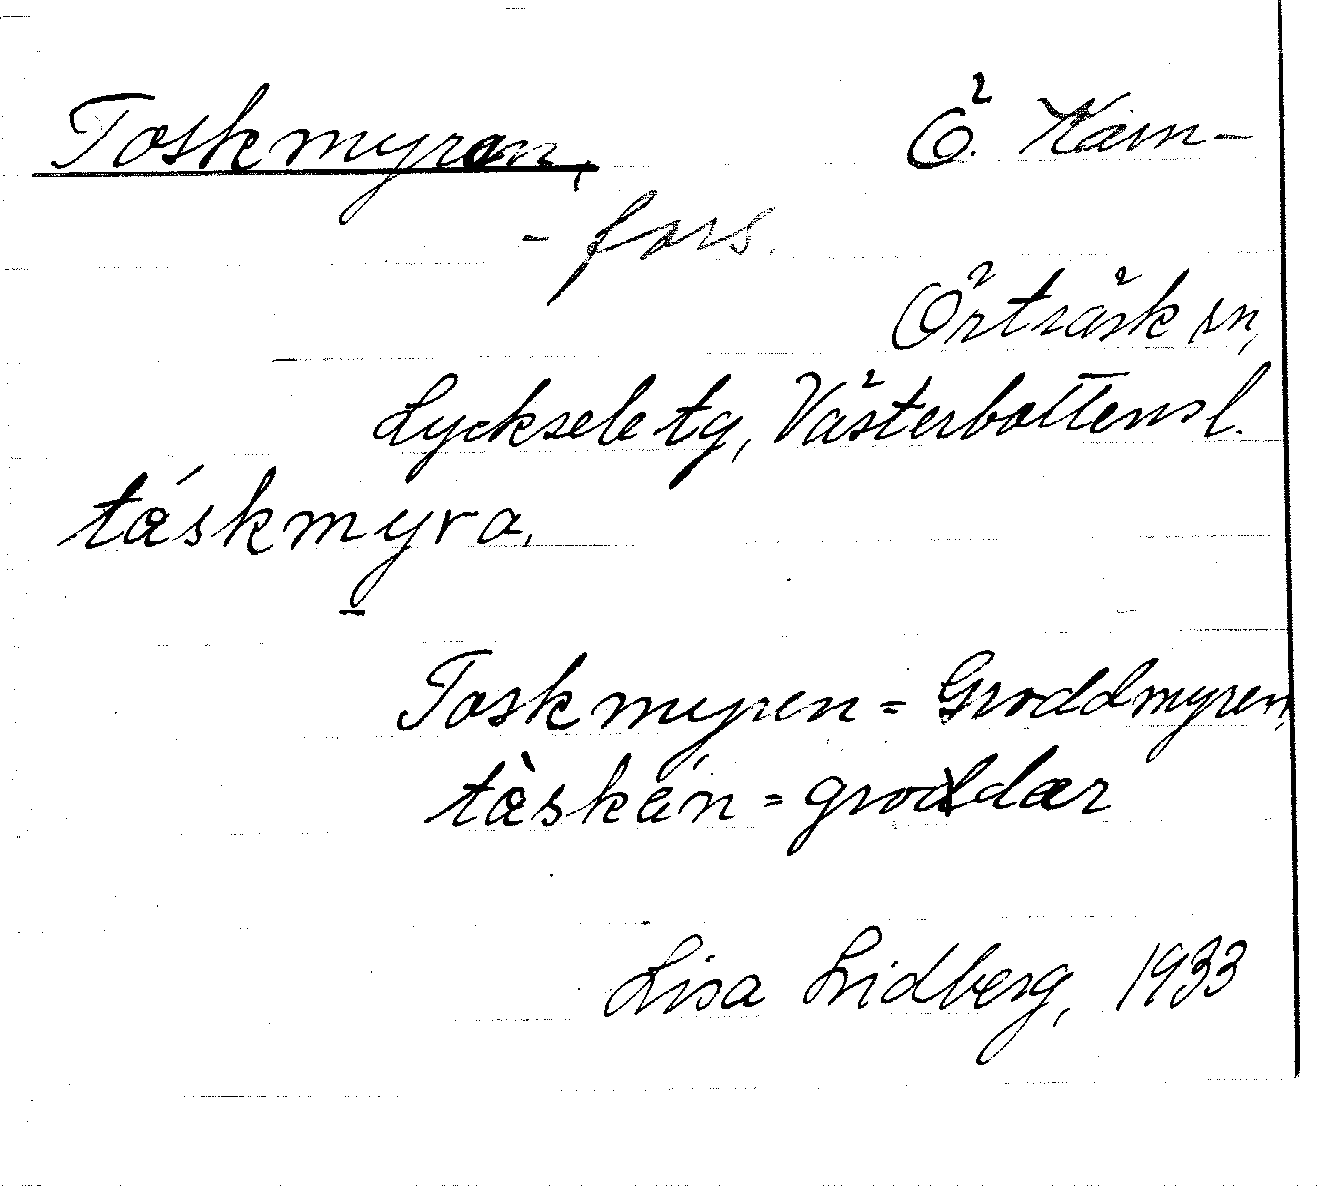 Toskmyran, Ö. Näsn-
- fors.
Örträsk sn,
Lycksele tg, Västerbottensl.
táskmyra.
Toskmyren = Groddmyren,
tàskán = groddar
Lisa Lidberg, 1933